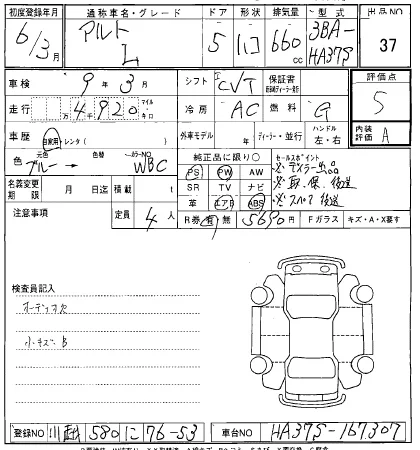 初度登録年月 通称車名・グレード ドア 形状 排気量 型式 出品NO
6/3月 アルト L 5 ハコ 660cc 3BA-HA37S 37
車検 9年3月 シフト CVT 保証書 評価点 5
走行 4,920 マイル キロ 冷房 AC 燃料 G
車歴 自家用・レンタ( ) 外車モデル 年 ディーラー・並行 ハンドル 左・右 内装評価 A
色 元色 ブルー → 色替 カラーNO WBC 純正品に限り○ セールスポイント
PS PW AW ※ディーラー
名義変更期限 月 日迄 積載 t SR TV ナビ ※取、保、後送
定員 4人 革 エアB ABS ※スペア 後送
注意事項 R券 有 無 5690円 Fガラス キズ・A・X要す
検査員記入
オーディオ欠
小キズ B
登録NO 川越 580 に 76-53 車台NO HA37S-167307